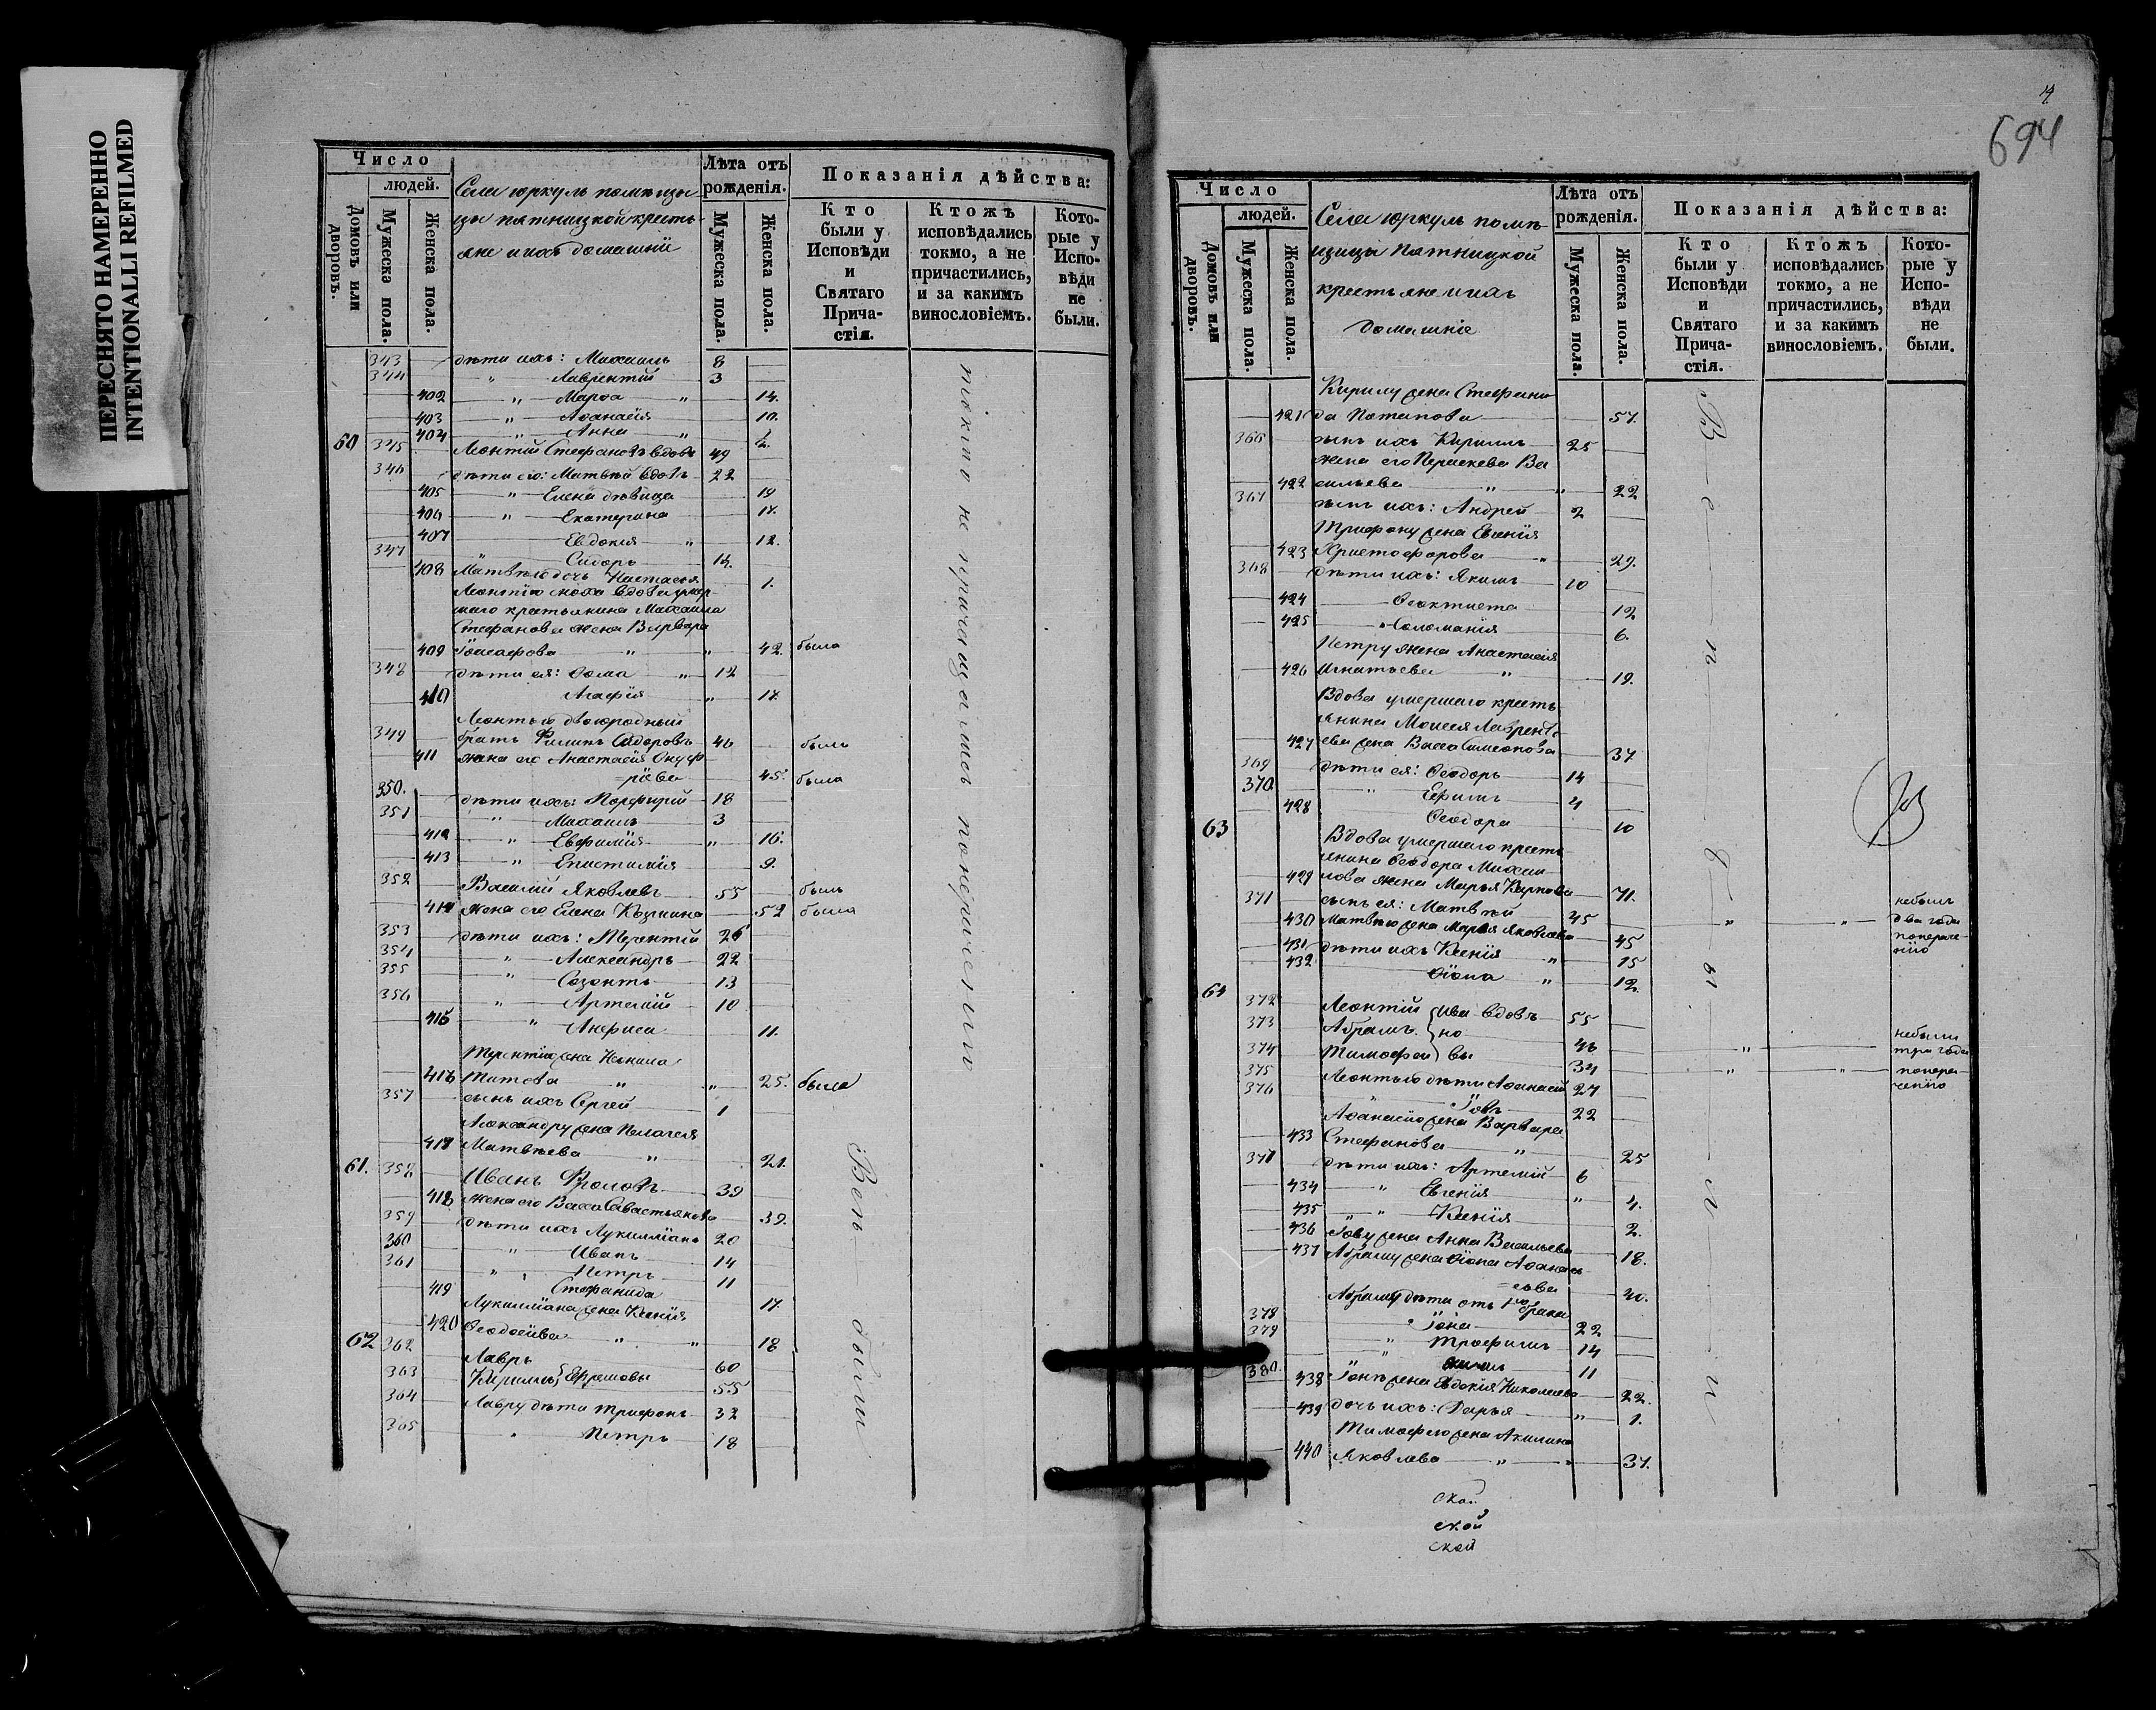 ПЕРЕСНЯТО НАМЕРЕННО
INTENTIONALLI REFILMED
Число
людей.
Домовъ или дворовъ.
Мужеска пола.
Женска пола.
Села Юркуль помѣщи
цы пятницкой кресть-
яне и ихъ домашнiи
Лѣта отъ рожденія.
Мужеска пола.
Женска пола.
Показанія дѣйства:
Кто были у Исповѣди и Святаго Прича-стія.
Ктожъ исповѣдались токмо, а не причастились, и за какимъ винословіемъ.
Кото-рые у Испо-вѣди не были.
343 дѣти ихъ: Михаилъ 8
344 " Лаврентій 3
402 " Марѳа " 14.
403 " Аѳанасія 10.
404 " Анна "
60 345 Леонтій Стефановъ вдовъ 49
346 дѣти его: Матвѣй вдовъ 22
405 " Елена дѣвица 19
406 " Екатерина 17.
407 Евдокія " 12.
347 " Сидоръ 14.
408 Матвѣю дочь Настасья 1.
Леонтію сноха вдова умер-
шаго крестьянина Михаила
Стефанова жена Варвара
409 Іоасафова " " 42. была
348 дѣти ея: Ѳома " 12
410 Агафія " 17.
Леонтью двоюродный
349 братъ Филипъ Сидоровъ 46 былъ
411 жена его Анастасія Онуф-
=ріева 45. была
350. дѣти ихъ: Порфирій 18
351 " Михаилъ 3
412 " Евфимія " 16.
413 " Епистимія 9.
352 Василій Яковлевъ 55 былъ
414 жена его Елена Козмина 52 была
353 дѣти ихъ: Терентій 26
354 " Александръ 22
355 " Созонтъ 13
356 " Артемій 10
415 " Анфиса 11.
Терентію жена Ненила
416 Титова " " 25. была
357 сынъ ихъ Сергей 1
Александру жена Пелагея
417 Матвѣева " 21.
61. 358 Иванъ Фроловъ 39
418 жена его Васса Савастьянова 39.
359 дѣти ихъ Лукилліанъ 20
360 " Иванъ 14
361 " Петръ 11
419 Стефанида 17.
Лукилліана жена Ксенія
420 Ѳеодосіева " " 18
62 362 Лавръ 60
363 Кирилъ } Ефремовы 55
364 Лавру дѣти Трифонъ 32
365 " Петръ 18
токмо не причащались по нерченію
Всѣ были
694
Число
людей.
Домовъ или дворовъ.
Мужеска пола.
Женска пола.
Села Юркуль помѣ-
щицы Пятницкой
крестьяне и ихъ
домашніе
Лѣта отъ рожденія.
Мужеска пола.
Женска пола.
Показанія дѣйства:
Кто были у Исповѣди и Святаго Прича-стія.
Ктожъ исповѣдались токмо, а не причастились, и за какимъ винословіемъ.
Кото-рые у Испо-вѣди не были.
Кирилу жена Стефани
421 да Потапова 57.
366 сынъ ихъ Кирилъ 25
жена его Параскева Ва
422 сильева " " 22
367 сынъ ихъ: Андрей 2
Трифону жена Евгенія
423 Христофорова " 29.
368 дѣти ихъ: Якимъ 10
424 Ѳеоктиста 12
425 " Соломанія 6.
Петру жена Анастасія
426 Игнатьева " 19.
Вдова умершаго кресть
янина Моисея Лаврентъ
427 ева жена Васса Симеонова 37
369 дѣти ея: Ѳеодоръ 14
370. " Ефимъ 4
428 Ѳеодора 10
63 Вдова умершаго кресть
янина Ѳеодора Михаи
429 лова жена Марья Карпова 71.
371 сынъ ея: Матвѣй 45 " " небылъ два года понераче-нію
430 Матвѣю жена Марья Яковлева 45
431 дѣти ихъ Ксенія " 15
432 Ѳіона " 12.
64 372 Леонтій } Ива вдовъ 55
373 Абрамъ } но 46
374 Тимофей } вы 34 небыли три года понера-ченію
375 Леонтью дѣти Аѳанасій 27
376 " Іовъ 22
Аѳанасію жена Варвара
433 Стефанова " 25
377 дѣти ихъ: Артемій 6
434 " Евгенія " 4.
435 " Ксенія 2.
436 Іову жена Анна Васильева 18.
437 Абраму жена Ѳіона Аѳанась-
=ева 40.
Абраму дѣти отъ 1го брака
378 " Іона 22
379 " Трофимъ 14
380. " 11
438 Іонѣ жена Евдокія Николаева 22.
439 дочь ихъ: Дарья " 1.
Тимофею жена Акилина
440 Яковлева " " 37.
В с ѣ б ы л и
ской
ской
ской